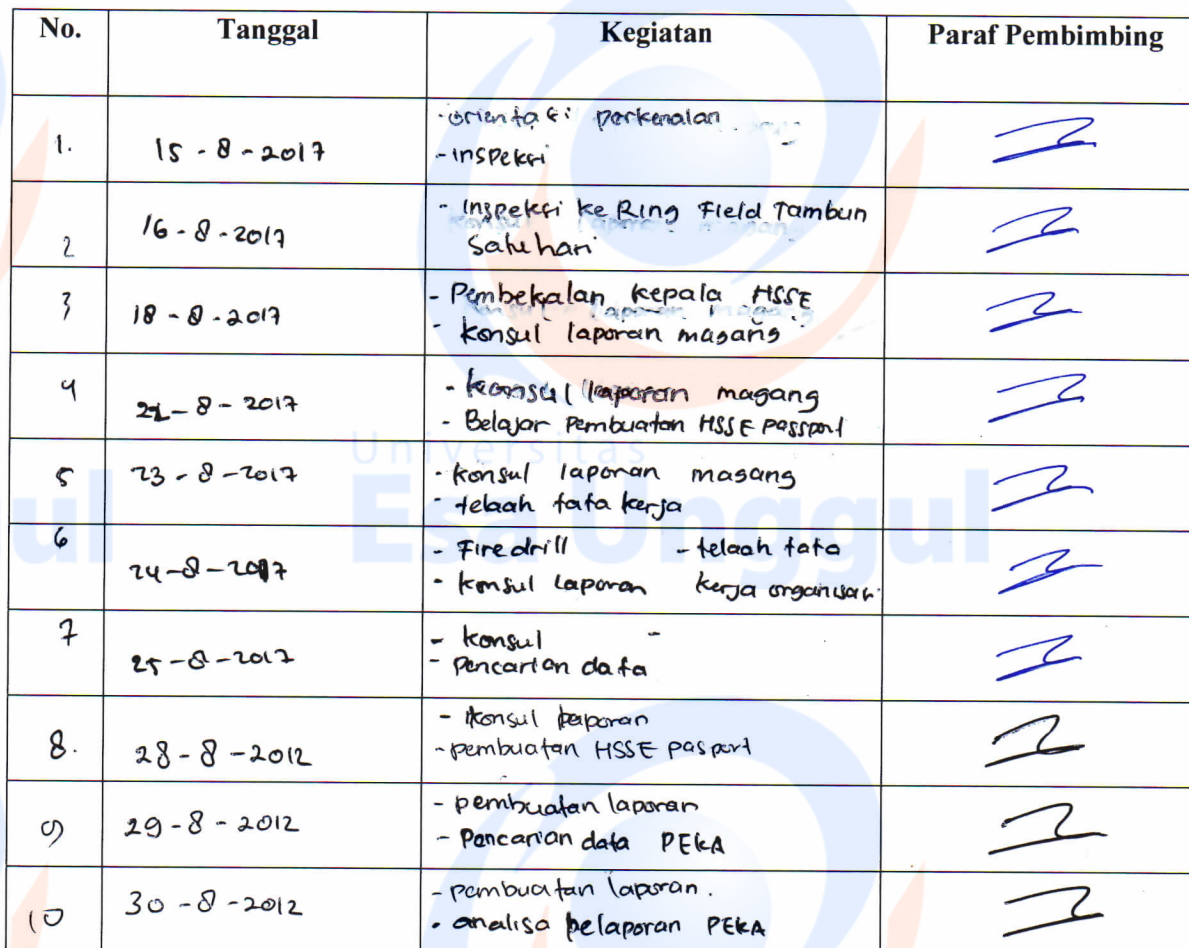 No. Tanggal Kegiatan Paraf Pembimbing
1. 15-8-2017 -orientasi perkenalan
-inspeksi
2 16-8-2017 - Inspeksi ke Ring Field Tambun
Satu hari
3 18-8-2017 - Pembekalan kepala HSSE
- konsul laporan magang
4 22-8-2017 - konsul laporan magang
- Belajar Pembuatan HSSE Passport
5 23-8-2017 - konsul laporan magang
- telaah tata kerja
6 24-8-2017 - Fire drill - telaah tata
- konsul laporan kerja organisasi
7 25-8-2017 - konsul -
- pencarian data
8. 28-8-2012 - konsul laporan
-pembuatan HSSE pasport
9 29-8-2012 - pembuatan laporan
- Pencarian data PEKA
10 30-8-2012 - pembuatan laporan.
- analisa pelaporan PEKA
Universitas
Esa Unggul
ul